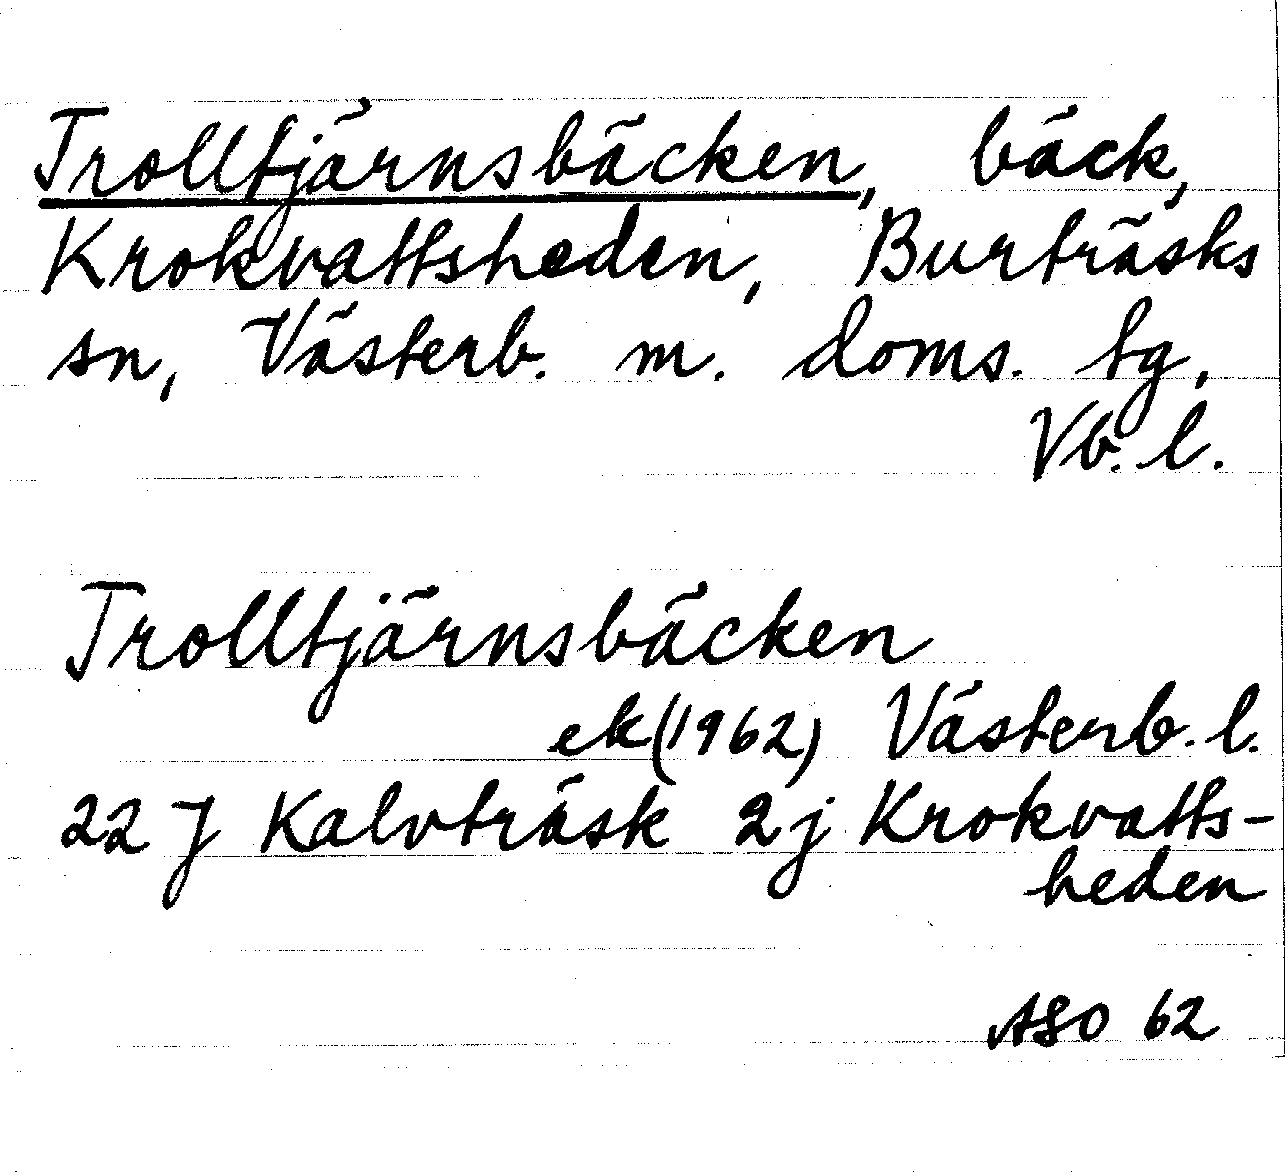 Trolltjärnsbäcken, bäck,
Krokvattsheden, Burträsks
sn, Västerb. m. doms. tg,
Vb. l.
Trolltjärnsbäcken
ek (1962) Västerb. l.
22 J Kalvträsk 2j Krokvatts-
heden
ASO 62